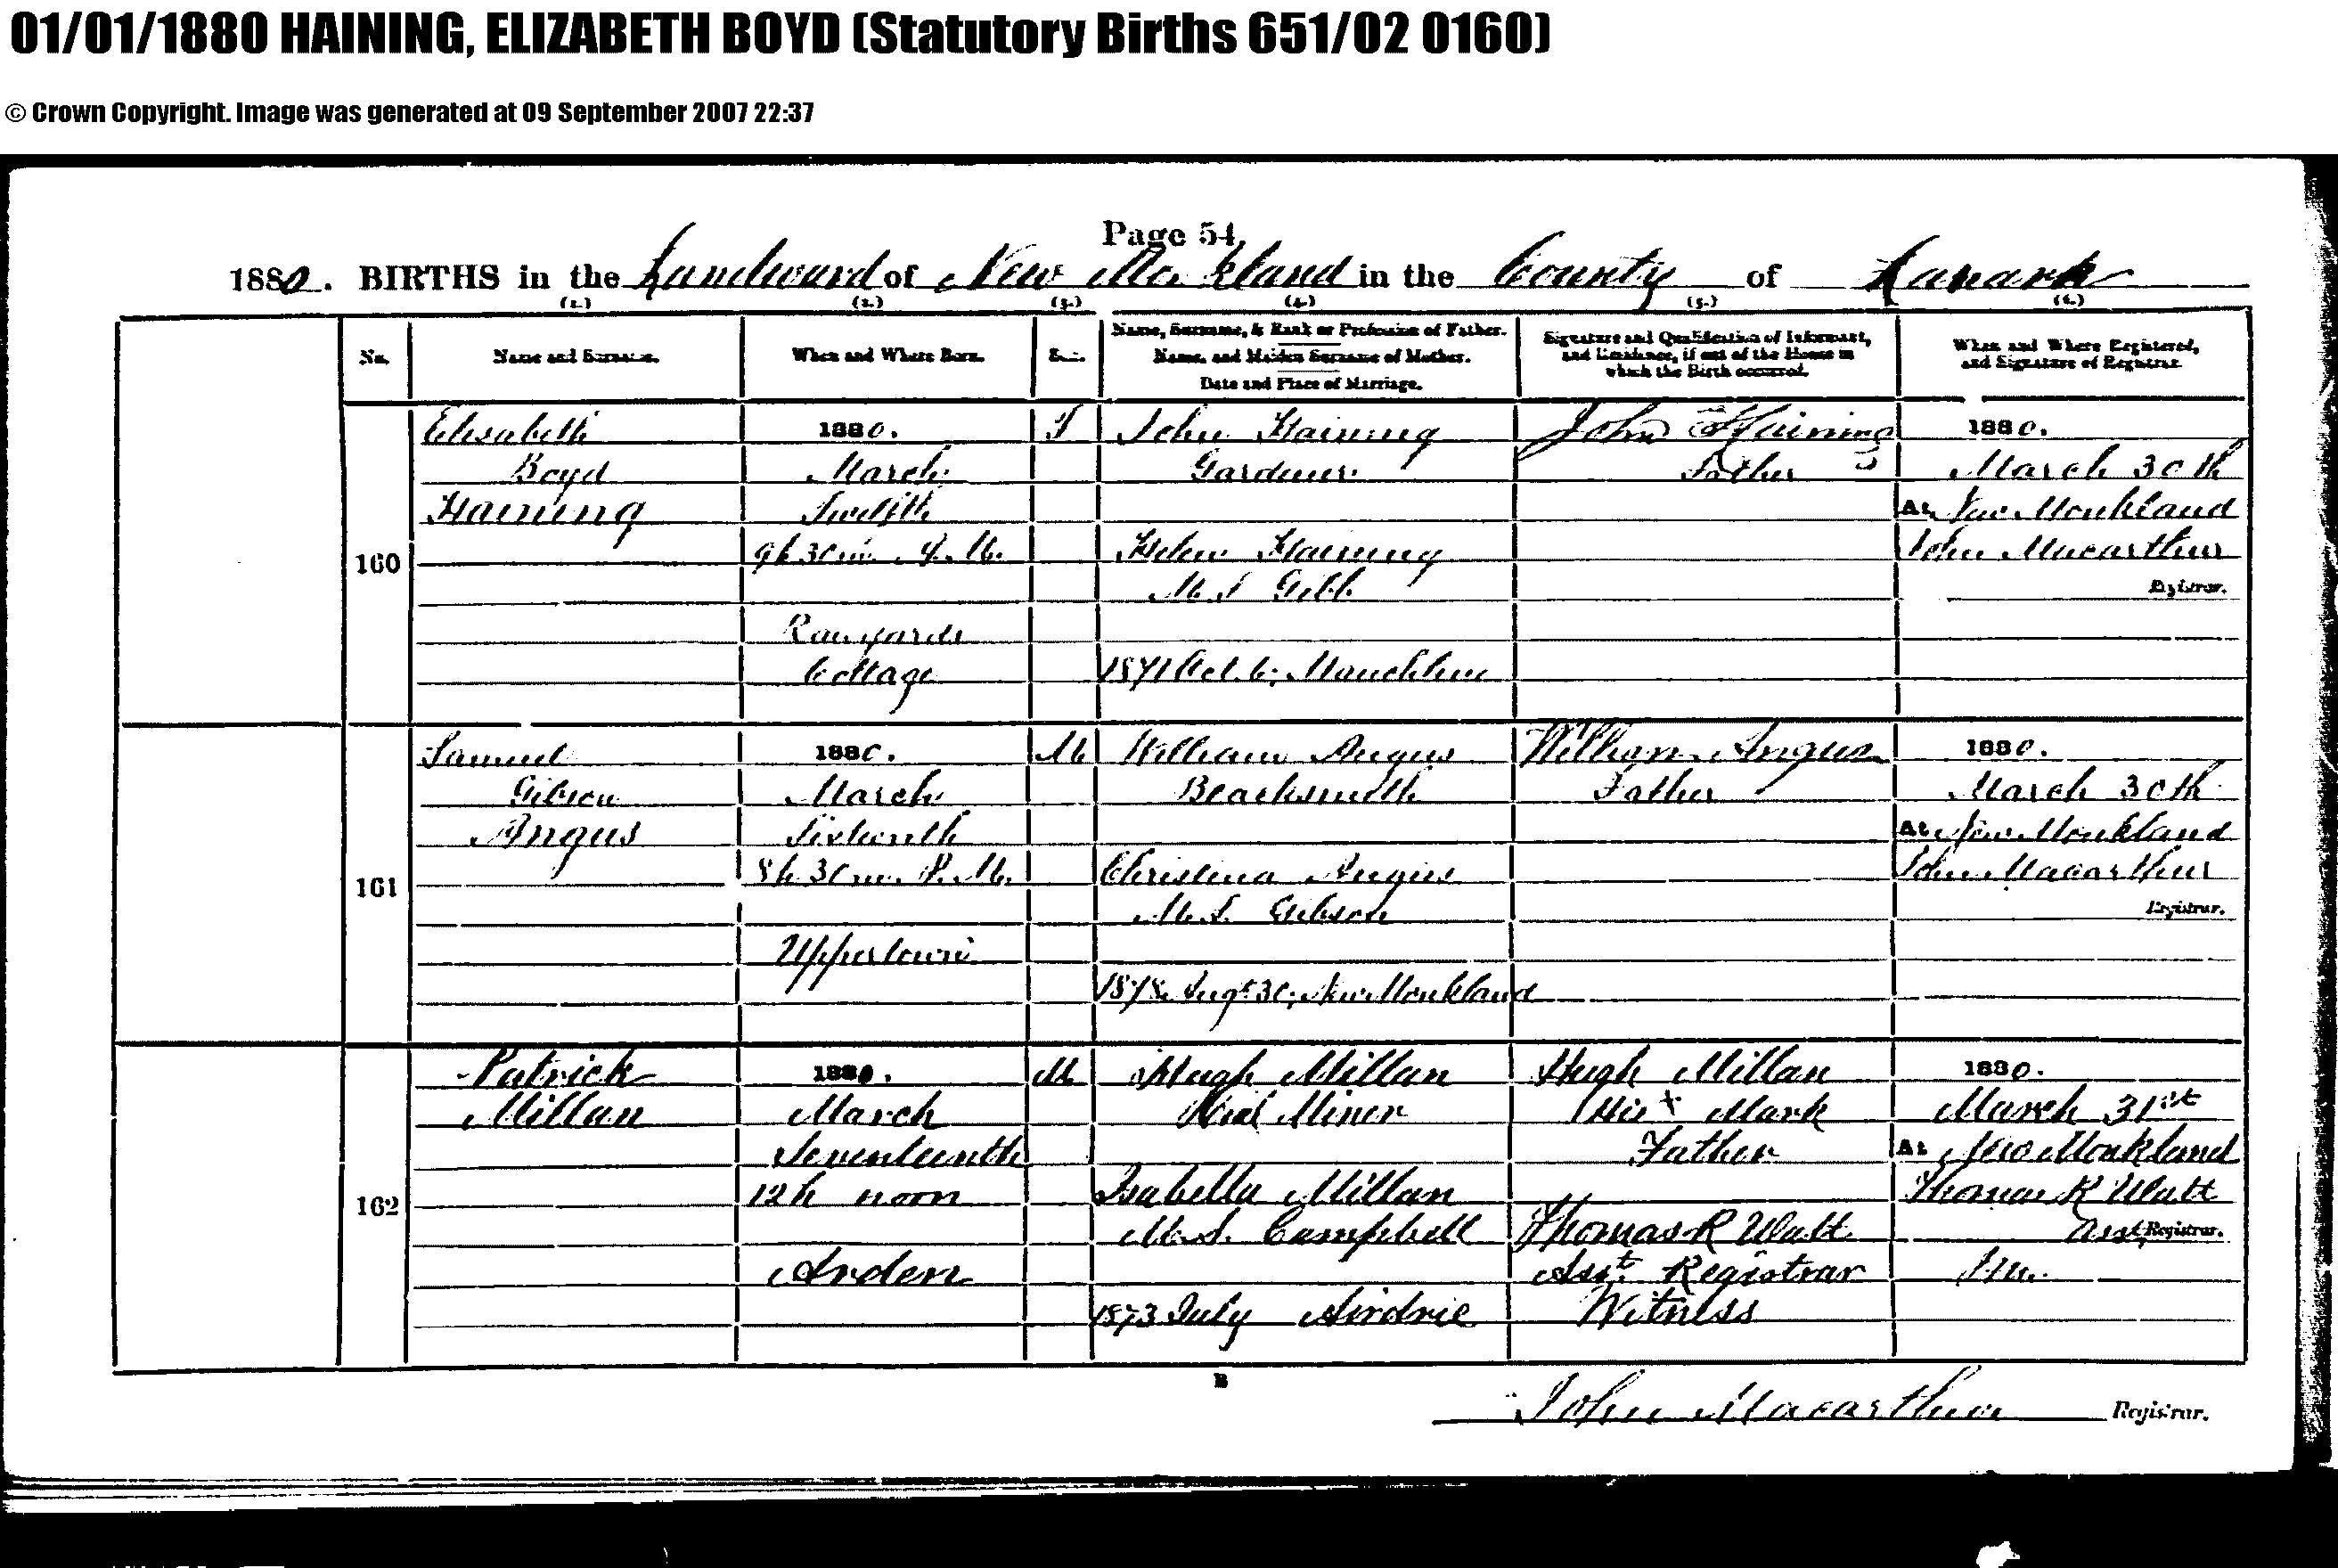 01/01/1880 HAINING, ELIZABETH BOYD (Statutory Births 651/02 0160)
© Crown Copyright. Image was generated at 09 September 2007 22:37
Page 54.
1880. BIRTHS in the Landward of New Monkland in the County of Lanark
(1.) (2.) (3.) (4.) (5.) (6.)
No. Name and Surname. When and Where Born. Sex. Name, Surname, & Rank or Profession of Father. Name, and Maiden Surname of Mother. Date and Place of Marriage. Signature and Qualification of Informant, and Residence, if out of the House in which the Birth occurred. When and Where Registered, and Signature of Registrar.
160
Elisabeth
Boyd
Haining
1880.
March
Twelfth
9h 30m. P.M.
Rawyards
Cottage
F
John Haining
Gardener
Helen Haining
M.S. Gibb
1871 Oct. 6, Mauchline
John Haining
Father
1880.
March 30th
At New Monkland
John Macarthur
Registrar.
161
Samuel
Gibson
Angus
1880.
March
Sixteenth
8h 30m. P.M.
Uppertown
M
William Angus
Blacksmith
Christina Angus
M.S. Gibson
1878, Augt 30, New Monkland
William Angus
Father
1880.
March 30th
At New Monkland
John Macarthur
Registrar.
162
Patrick
Millan
1880.
March
Seventeenth
12h noon
Arden
M
Hugh Millan
Miner
Isabella Millan
M.S. Campbell
1873 July Airdrie
Hugh Millan
His x Mark
Father
Thomas R Watt
Asst. Registrar
Witness
1880.
March 31st
At New Monkland
Thomas R Watt
Asst. Registrar.
B
John Macarthur Registrar.